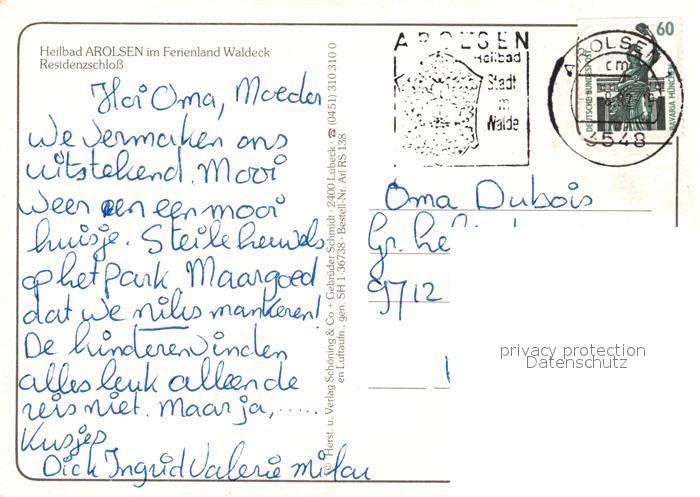 Heilbad AROLSEN im Ferienland Waldeck
Residenzschloß
Hoi Oma, Moeder
we vermaken ons
uitstekend. Mooi
weer en een mooi
huisje. Steile heuvels
op het park. Maar goed
dat we niks mankeren!
De kinderen vinden
alles leuk alleen de
reis niet. Maar ja, .....
Kusjes
Dick Ingrid Valerie Milau
© Herst. u. Verlag Schöning & Co + Gebrüder Schmidt · 2400 Lübeck ☎ (0451) 310 310 0
en Luftaufn., gen. SH 1-36738 · Bestell-Nr. Arl RS 138
AROLSEN
Heilbad
Stadt
im
Walde
AROLSEN
cm
3548
60
DEUTSCHE BUNDESPOST
BAVARIA MÜNCHEN
Oma Dubois
Gr.
9712
privacy protection
Datenschutz